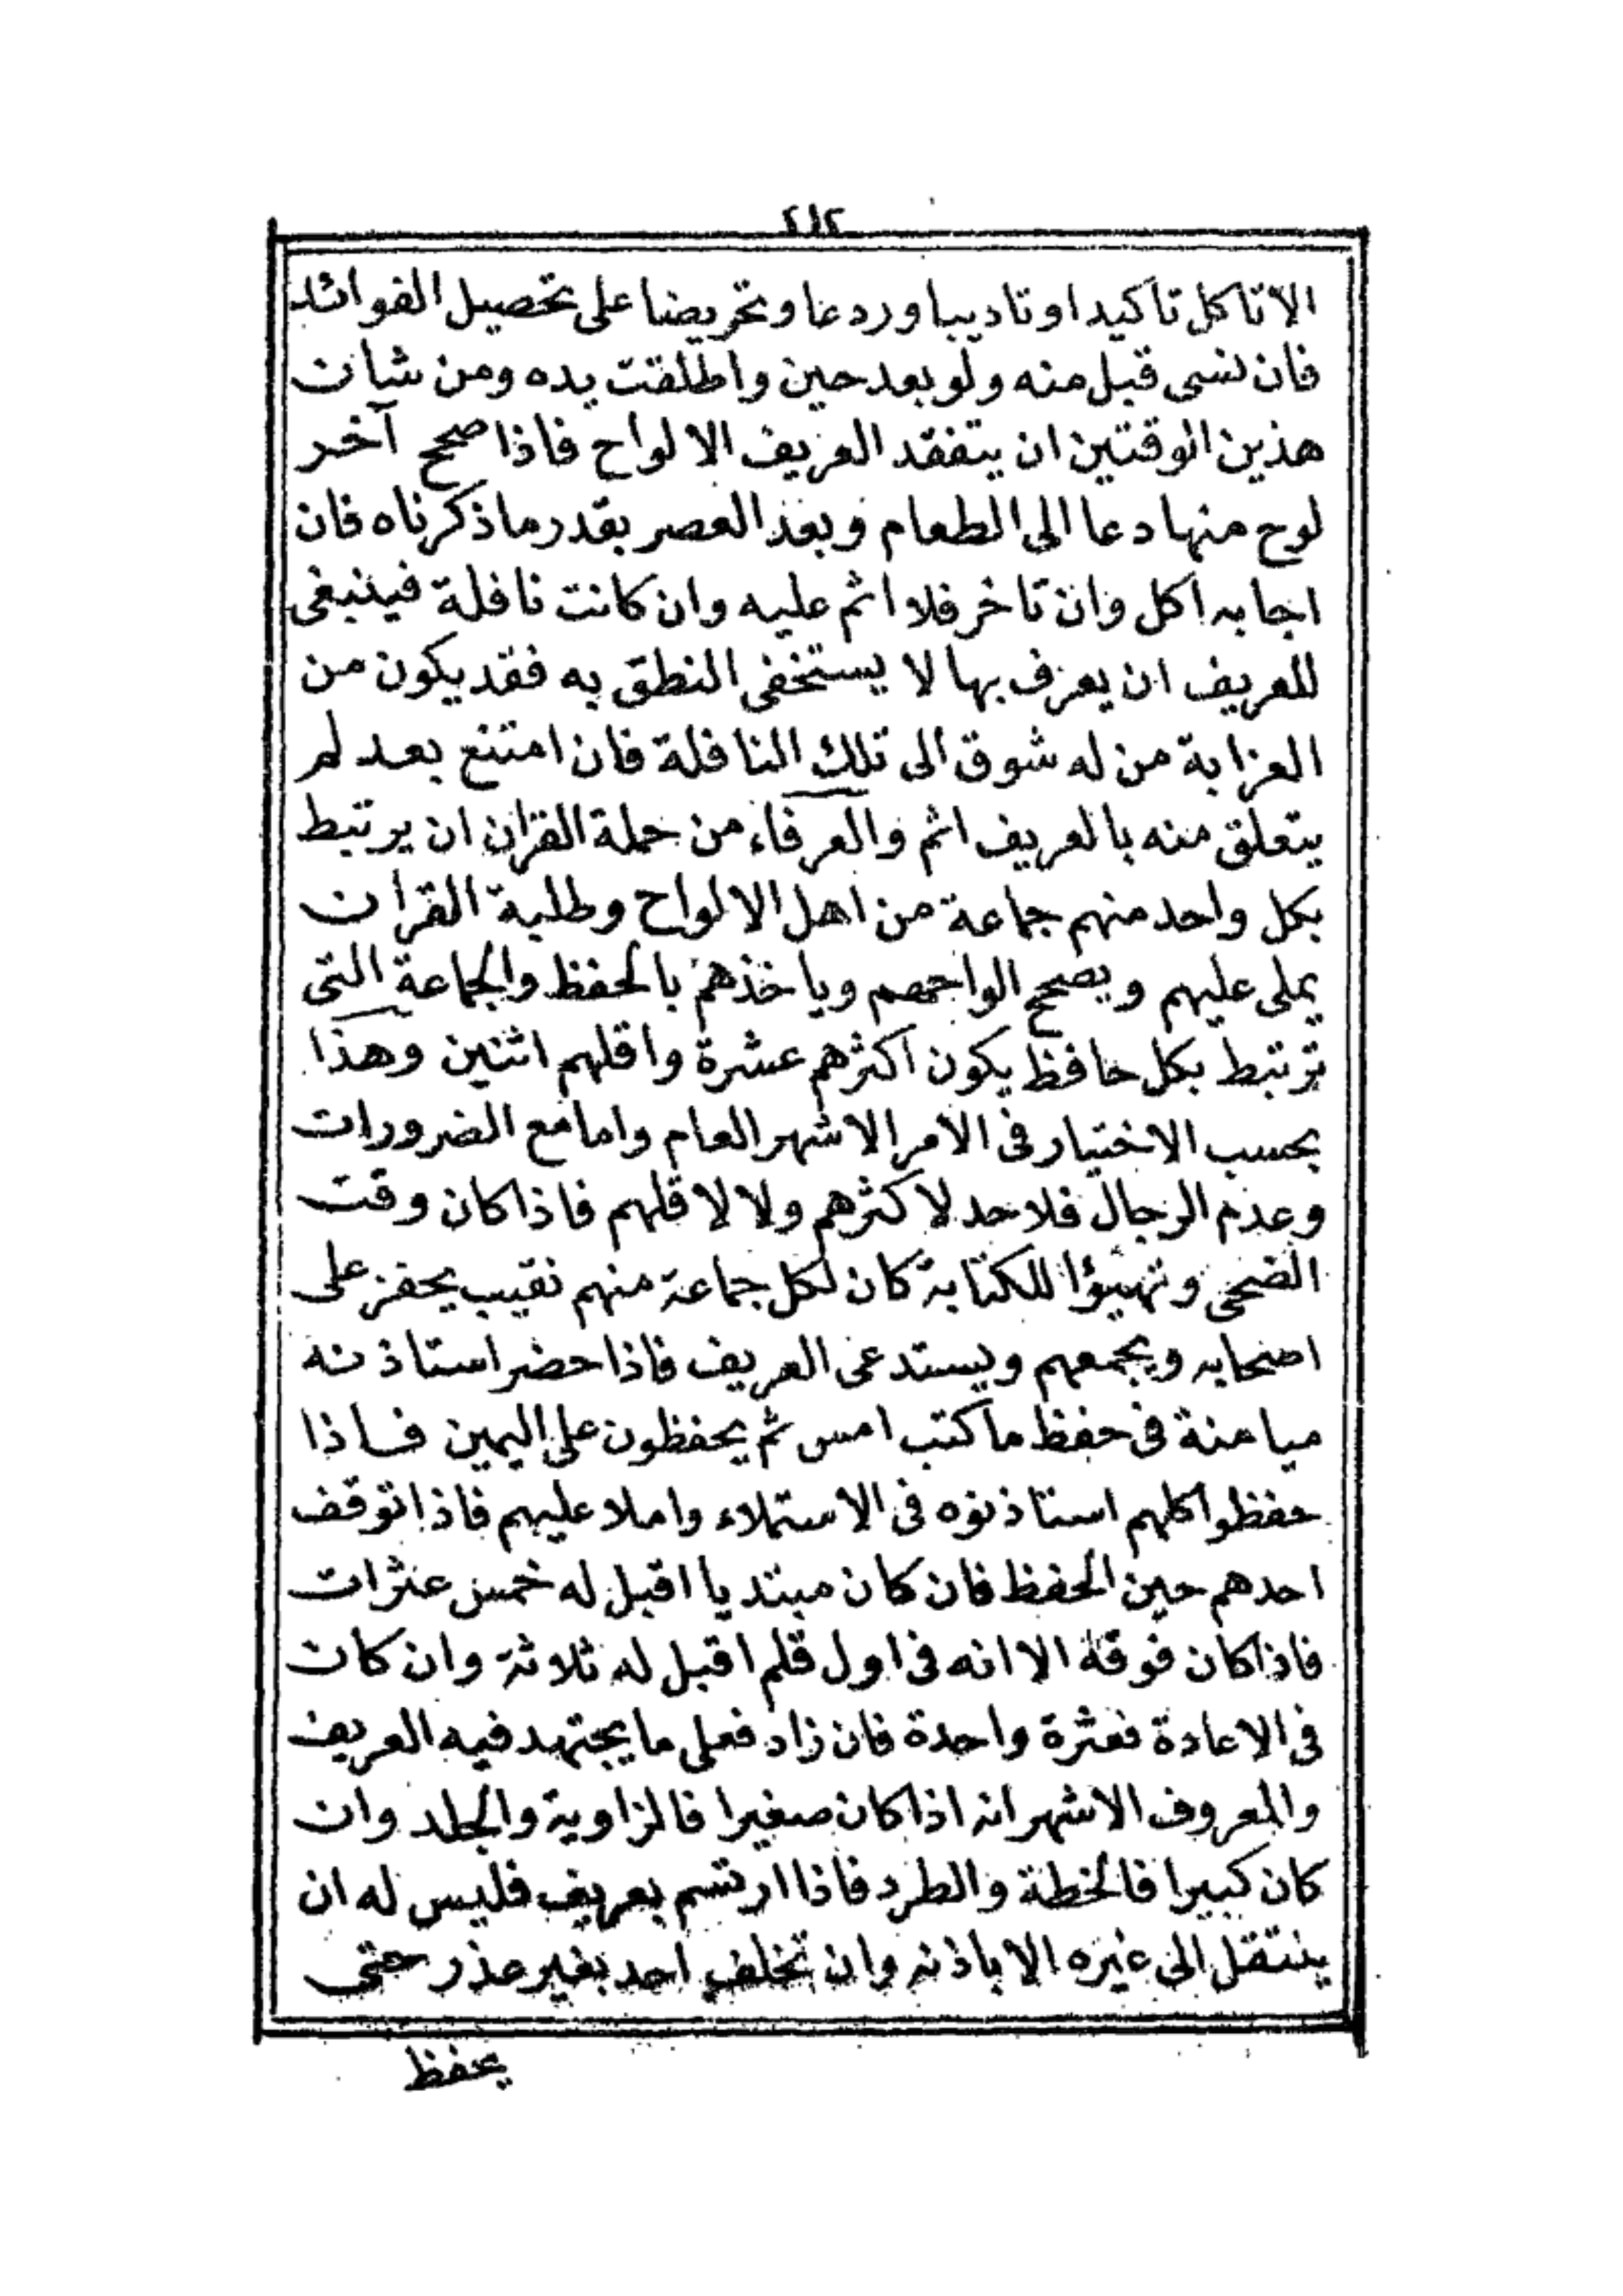 ٢١٢
الا تاكل تاكيدا وتاديبا وردعا وتحريضا على تحصيل الفوائد
فان نسى قبل منه ولو بعد حين واطلقت يده ومن شان
هذين الوقتين ان يتفقد العريف الالواح فاذا صحح آخر
لوح منها دعا الى الطعام وبعد العصر بقدر ما ذكرناه فان
اجابه اكل وان تاخر فلا اثم عليه وان كانت نافلة فينبغى
للعريف ان يعرف بها لا يستخفى النطق به فقد يكون من
العزابة من له شوق الى تلك النافلة فان امتنع بعد لم
يتعلق منه بالعريف اثم والعرفاء من حملة القران ان يرتبط
بكل واحد منهم جماعة من اهل الالواح وطلبة القران
يملى عليهم ويصحح الواحهم وياخذهم بالحفظ والجماعة التى
ترتبط بكل حافظ يكون اكثرهم عشرة واقلهم اثنين وهذا
بحسب الاختيار فى الامر الاشهر العام واما مع الضرورات
وعدم الرجال فلا حد لاكثرهم ولا لاقلهم فاذا كان وقت
الضحى وتهيؤا للكتابة كان لكل جماعة منهم نقيب يحفز على
اصحابه ويجمعهم ويستدعى العريف فاذا حضر استاذنه
ميامنة فى حفظ ما كتب امس ثم يحفظون على اليمين فاذا
حفظوا كلهم استاذنوه فى الاستملاء واملا عليهم فاذا توقف
احدهم حين الحفظ فان كان مبتديا اقبل له خمس عثرات
فاذا كان فوقه الا انه فى اول قلم اقبل له ثلاثة وان كان
فى الاعادة فعثرة واحدة فان زاد فعلى ما يجتهد فيه العريف
والمعروف الاشهر انه اذا كان صغيرا فالزاوية والجلد وان
كان كبيرا فالخطة والطرد فاذا ارتسم بعريف فليس له ان
ينتقل الى غيره الا باذنه وان تخلف احد بغير عذر حتى
يحفظ